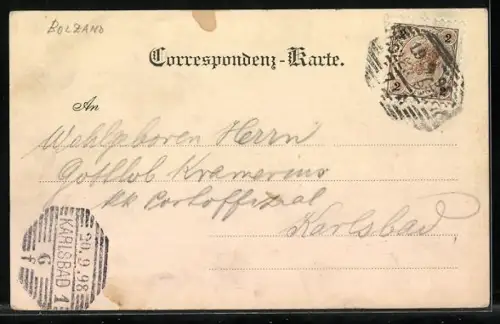 BOLZANO
Correspondenz-Karte.
2
2 2
An
Wohlgeboren Herrn
Gottlob Kramerius
kk Postoffizial
Karlsbad
20.9.98
KARLSBAD 1
6
f